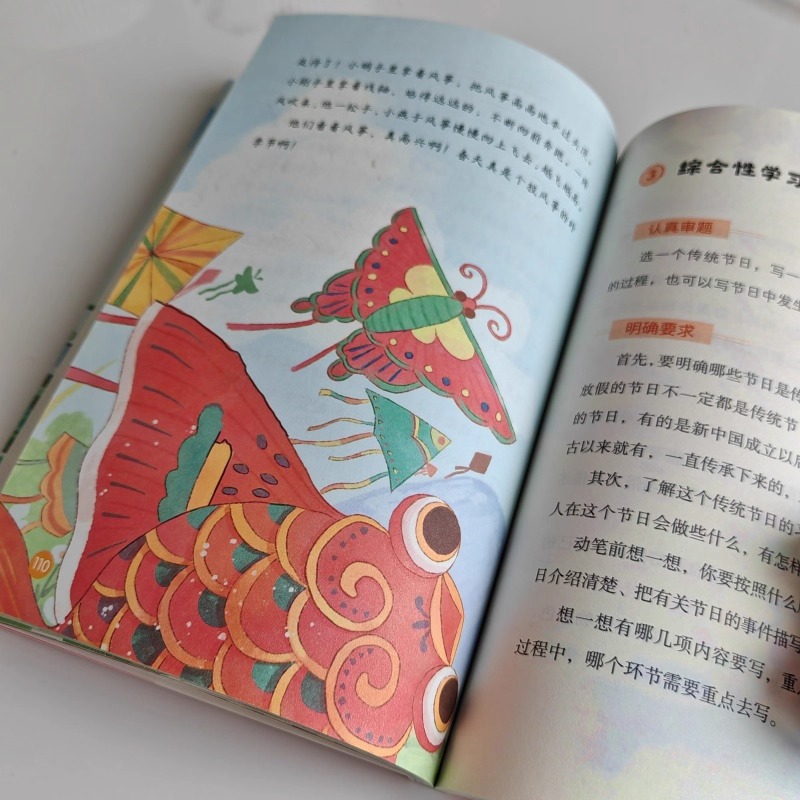 小刚手里拿着线轴，不断向前奔跑，一阵
风吹来，他一松手，小燕子风筝慢慢向上飞去，越飞越高。
他们看着风筝，真高兴啊！春天真是个放风筝的好
季节啊！
110
3 综合性学习
认真审题
选一个传统节日，写一
的过程，也可以写节日中发生
明确要求
首先，要明确哪些节日是传
放假的节日不一定都是传统节
的节日，有的是新中国成立以后
古以来就有，一直传承下来的，
其次，了解这个传统节日的
人在这个节日会做些什么，有怎样
动笔前想一想，你要按照什么
日介绍清楚、把有关节日的事件描写
想一想有哪几项内容要写，重
过程中，哪个环节需要重点去写。